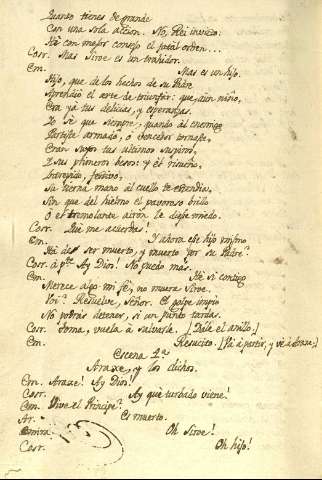 Quanto tienes de grande
Con una sola accion. No, Rei invicto:
Ha con mejor consejo el fatal orden...
Cosr. Mas Siroe es un trahidor.
Em. Mas es un hijo.
Hijo, que de los hechos de su Padre
Aprendió el arte de triunfar: que, aun niño,
Era ya tus delicias, y esperanzas.
Yo sé que siempre, quando al enemigo
Partiste armado, ó vencedor tornaste,
Eran suyos tus ultimos suspiros,
Y sus primeros besos: y él risueño,
festivo,
Su tierna mano al cuello te extendia,
Sin que del hielmo el pavoroso brillo
O el tremolante airón le diese miedo.
Cosr. Qué me acuerdas!
Em. Y ahora ese hijo mismo
Há de ser muerto, y muerto por su Padre?
Cosr. á pte. Ay Dios! No puedo mas.
Em. Há si contigo
Merece algo mi fé, no muera Siroe.
Resuelve, Señor. El golpe impio
No podrás detener, si un punto tardas.
Cosr. Toma, vuela á salvarle. [Dále el anillo.]
Em. Resucito. [Vá á partir, y vé á Araxe.]
Escena 4.ª
Araxe, y los dichos.
Em. Araxe! Ay Dios!
Cosr. Ay qué turbado viene!
Em. Vive el Principe?
Ar. Es muerto.
Emira. Oh Siroe!
Cosr. Oh hijo!